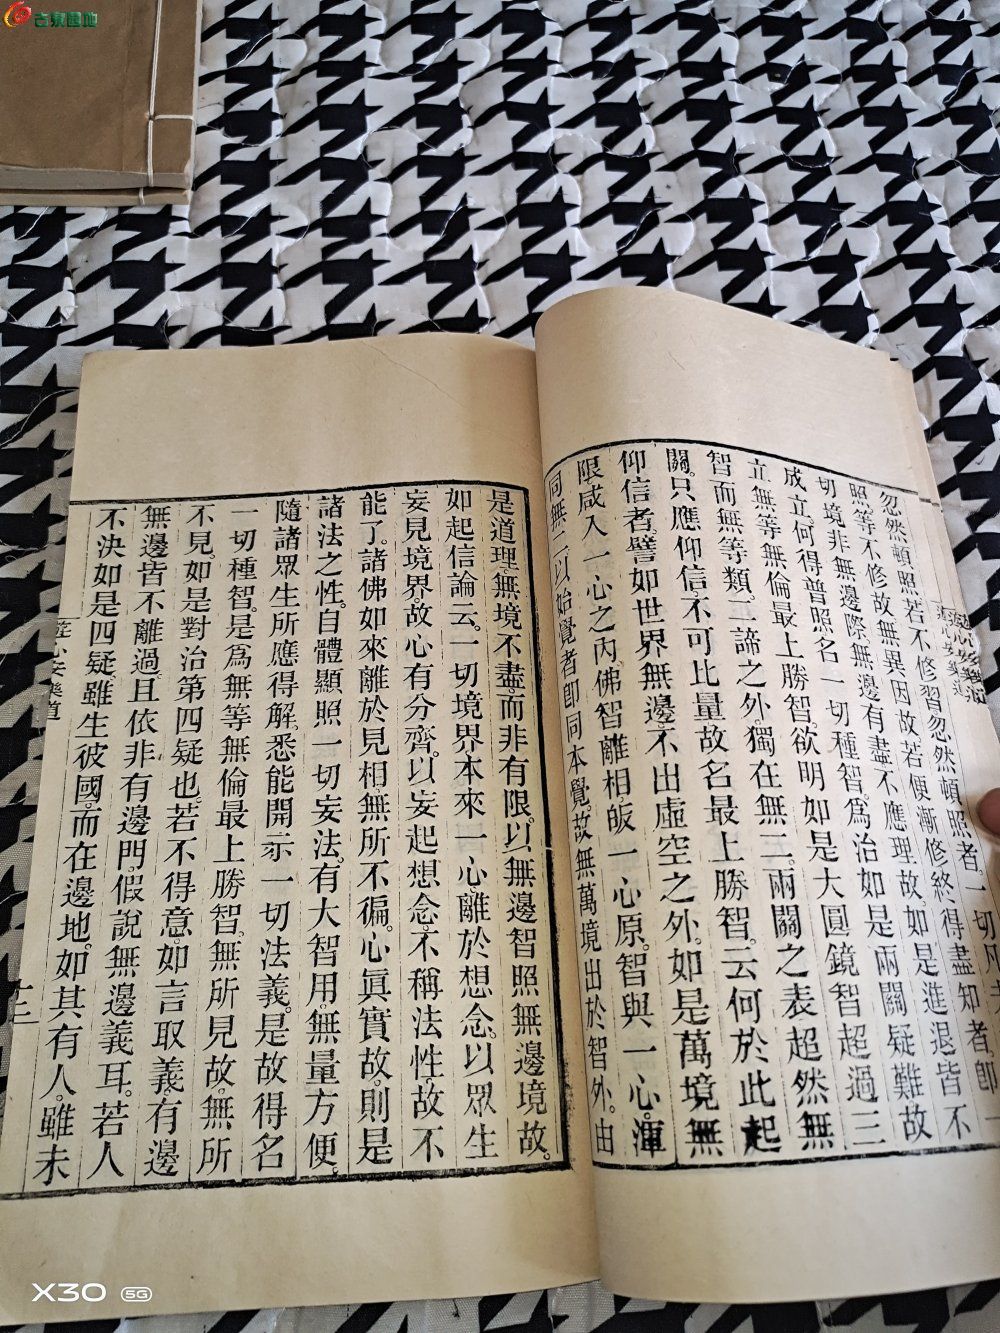 古泉園地
忽然頓照若不修習忽然頓照者一切凡
照等不修故無異因故若便漸修終得盡知者即一
切境非無邊際無邊有盡不應理故如是進退皆不
成立何得普照名一切種智為治如是兩關疑難故
立無等無倫最上勝智欲明如是大圓鏡智超過三
智而無等類二諦之外獨在無二兩關之表超然無
關只應仰信不可比量故名最上勝智云何於此起
仰信者譬如世界無邊不出虛空之外如是萬境無
限咸入一心之內佛智離相皈一心原智與一心渾
同無二以始覺者即同本覺故無萬境出於智外由
是道理無境不盡而非有限以無邊智照無邊境故
如起信論云一切境界本來一心離於想念以眾生
妄見境界故心有分齊以妄起想念不稱法性故不
能了諸佛如來離於見相無所不徧心真實故則是
諸法之性自體顯照一切妄法有大智用無量方便
隨諸眾生所應得解悉能開示一切法義是故得名
一切種智是為無等無倫最上勝智無所見故無所
不見如是對治第四疑也若不得意如言取義有邊
無邊皆不離過且依非有邊門假說無邊義耳若人
不決如是四疑雖生彼國而在邊地如其有人雖未
遊心安樂道
十二
X30 5G